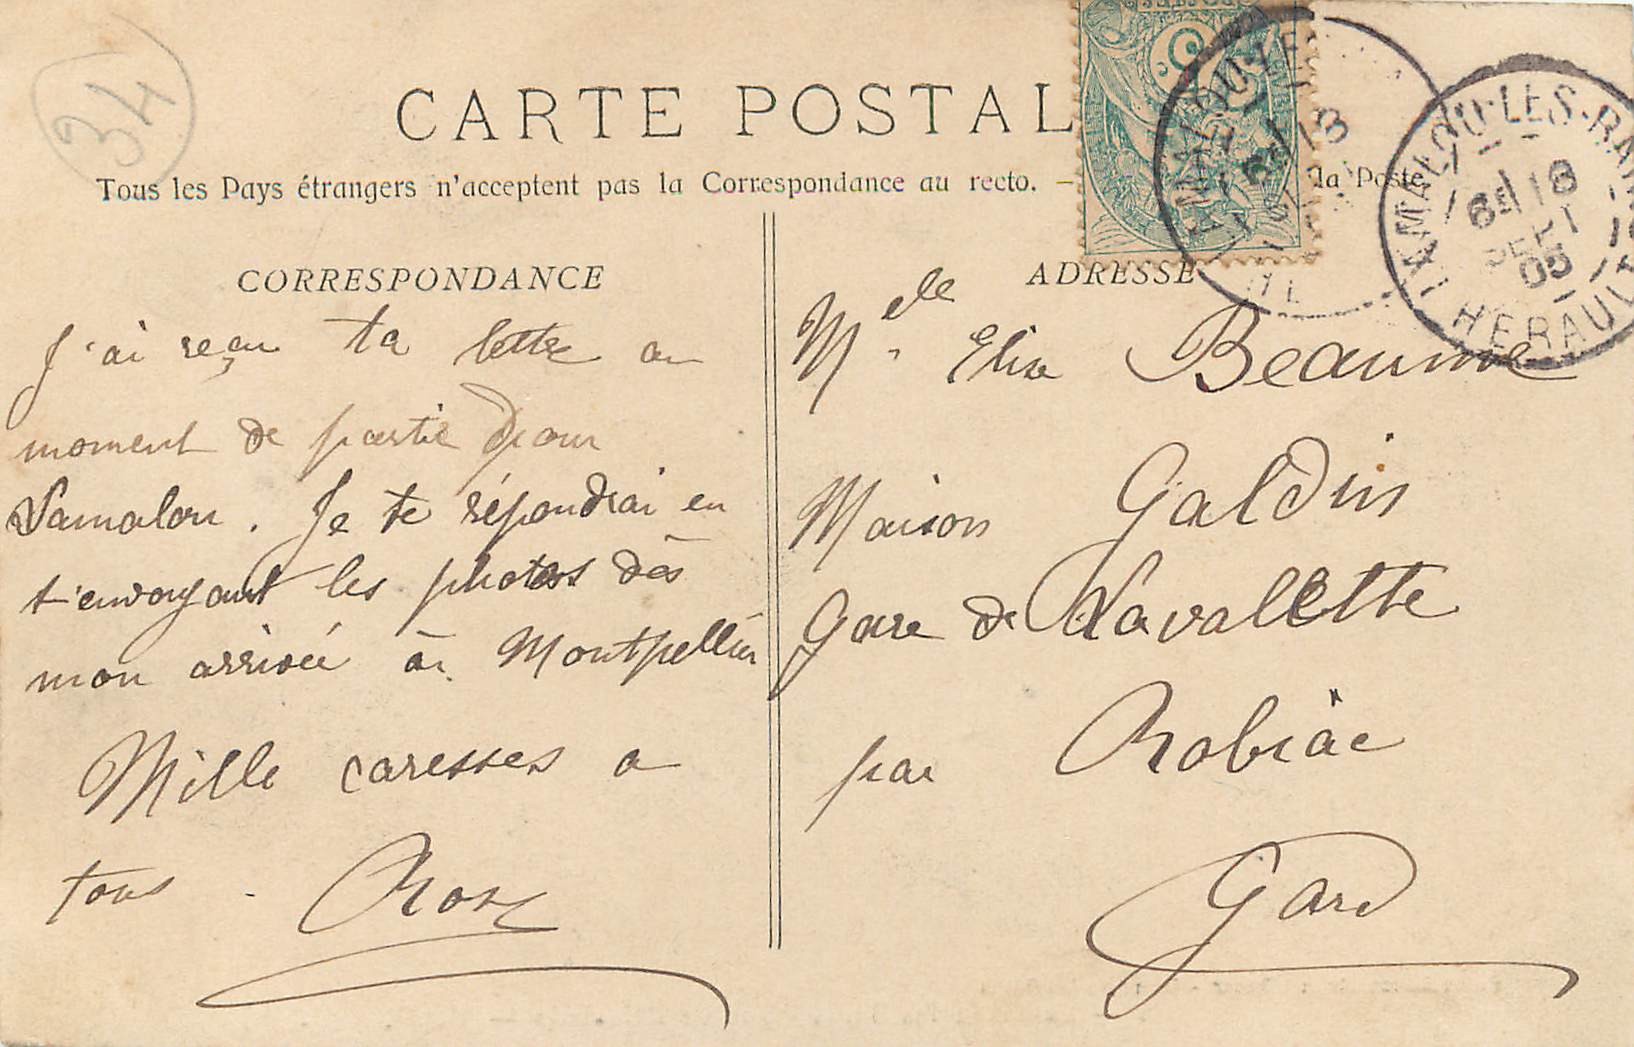 34
CARTE POSTAL
Tous les Pays étrangers n'acceptent pas la Correspondance au recto. — la Poste
CORRESPONDANCE
J'ai reçu ta lettre au
moment de partir pour
Lamalou. Je te répondrai en
t'envoyant les photos dès
mon arrivée à Montpellier
Mille caresses a
tous. Rose
ADRESSE
Melle Elise Beaume
Maison Galdin
Gare de Lavalette
par Robiac
Gard
LAMALOU-LES-BAINS
6E 18
SEPT
05
HERAULT